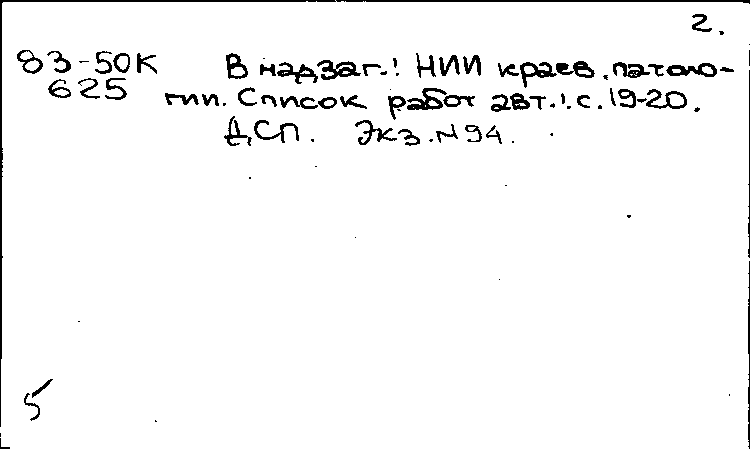 2.
83-50К В надзаг.: НИИ краев. патоло-
625 гии. Список работ авт.: с. 19-20.
ДСП. Экз. N 94.
5